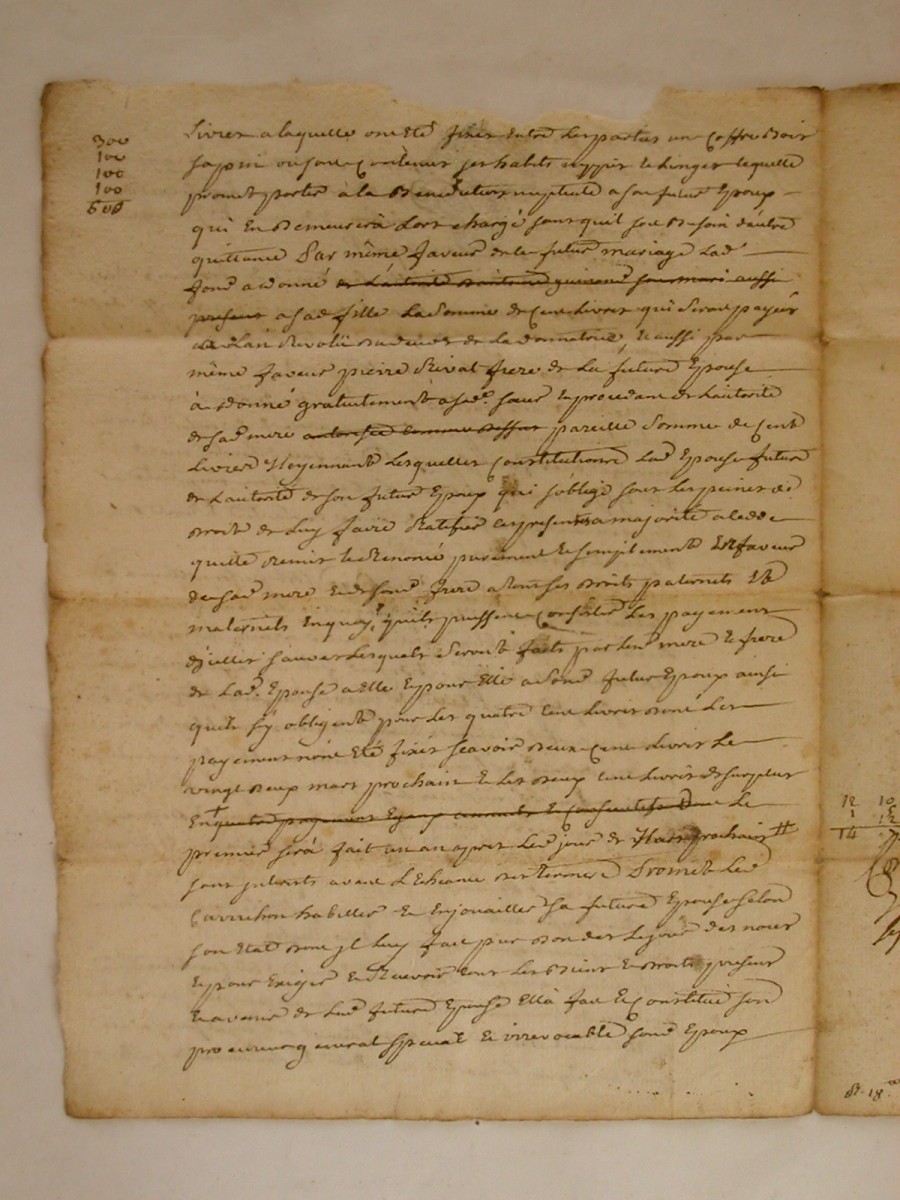 300
100
100
100
600
Livres a laquelle ont Eté fixés entre les parties un Coffre bois
sapin ou sont Contenus ses habits nippes et Linges lequelle
promet porter a la Benediction nuptiale a son futur Epoux
qui En Demeurera Lors chargé sans quil soit Besoin dautre
quittance Par même faveur de ce futur mariage Lad.
a donné de L'autorité guiraud son mari aussi
present a sad. fille La Somme de Cent Livres qui Seront payés
L'an Revolu du deces de La donnatrice, Et aussi par
même faveur pierre Rivat frere de La future Epouse
à donné gratuitement a sad. sœur En procedant de L'autorité
de sad. mere autorisée comme dessus pareille Somme de Cent
Livres Moyennant Lesquelles Constitutions Lad. Epouse future
de L'autorité de son futur Epoux qui soblige sous Les peines de
droit de Luy faire Ratifier ces presentes a majorité a
quitté remis et Renoncé purement et simplement En faveur
de sad. mere et de sond. frere a tous ses droits paternels Et
maternels En quoy quils puissent Consister Les payement
dicelles sauves Lesquels Seront faits par led. mere et frere
de Lad. Epouse a elle Et pour Elle a Sond. futur Epoux ainsi
quils sy obligent pour Les quatre Cent Livres dont Les
payement nont Eté fixés scavoir deux Cent Livres Le
vingt deux mars prochain Et Les deux Cent Livres de surplus
En quatre payement Egaux annuels Et Consecutifs dont Le
premier sera fait un an apres Led. jour de Mars prochain
sans interets avant L'Echeance des termes Promet Led.
Carrichon habiller Et Enjouailler Sa future Epouse Selon
son Etat dont jl Luy fait pur don des Le jour des noces
Et pour Exiger Et Recevoir tous Les Biens Et droits presens
Et avenir de Lad. future Epouse Ella fait Et Constitué Son
procureur general special Et irrevocable Sond. Epoux
12 10
1
14